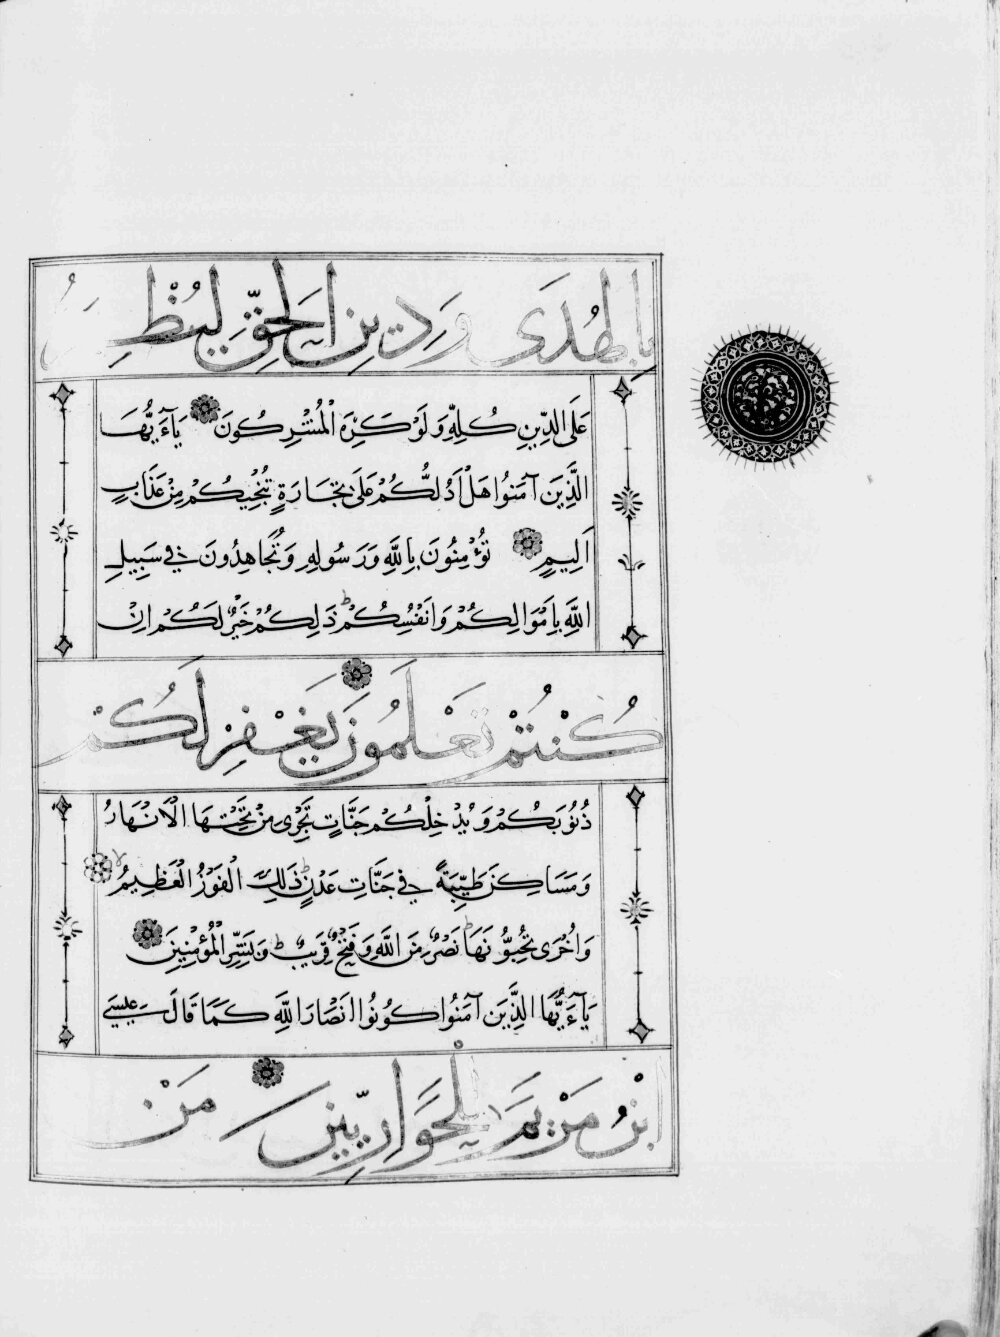 بِالْهُدَى وَدِينِ الْحَقِّ لِيُظْهِرَهُ
عَلَى الدِّينِ كُلِّهِ وَلَوْ كَرِهَ الْمُشْرِكُونَ يَآءَيُّهَا
الَّذِينَ آمَنُوا هَلْ اَدُلُّكُمْ عَلَى تِجَارَةٍ تُنْجِيكُمْ مِنْ عَذَابٍ
اَلِيمٍ تُؤْمِنُونَ بِاللَّهِ وَرَسُولِهِ وَتُجَاهِدُونَ فِي سَبِيلِ
اللَّهِ بِاَمْوَالِكُمْ وَاَنْفُسِكُمْ ط ذَلِكُمْ خَيْرٌ لَكُمْ اِنْ
كُنْتُمْ تَعْلَمُونَ يَغْفِرْ لَكُمْ
ذُنُوبَكُمْ وَيُدْخِلْكُمْ جَنَّاتٍ تَجْرِى مِنْ تَحْتِهَا الْاَنْهَارُ
وَمَسَاكِنَ طَيِّبَةً فِي جَنَّاتِ عَدْنٍ ط ذَلِكَ الْفَوْزُ الْعَظِيمُ لا
وَاُخْرَى تُحِبُّونَهَا ط نَصْرٌ مِنَ اللَّهِ وَفَتْحٌ قَرِيبٌ ط وَبَشِّرِ الْمُؤْمِنِينَ
يَآءَيُّهَا الَّذِينَ آمَنُوا كُونُوا اَنْصَارَ اللَّهِ كَمَا قَالَ عِيسَى
ابْنُ مَرْيَمَ لِلْحَوَارِيِّينَ مَنْ